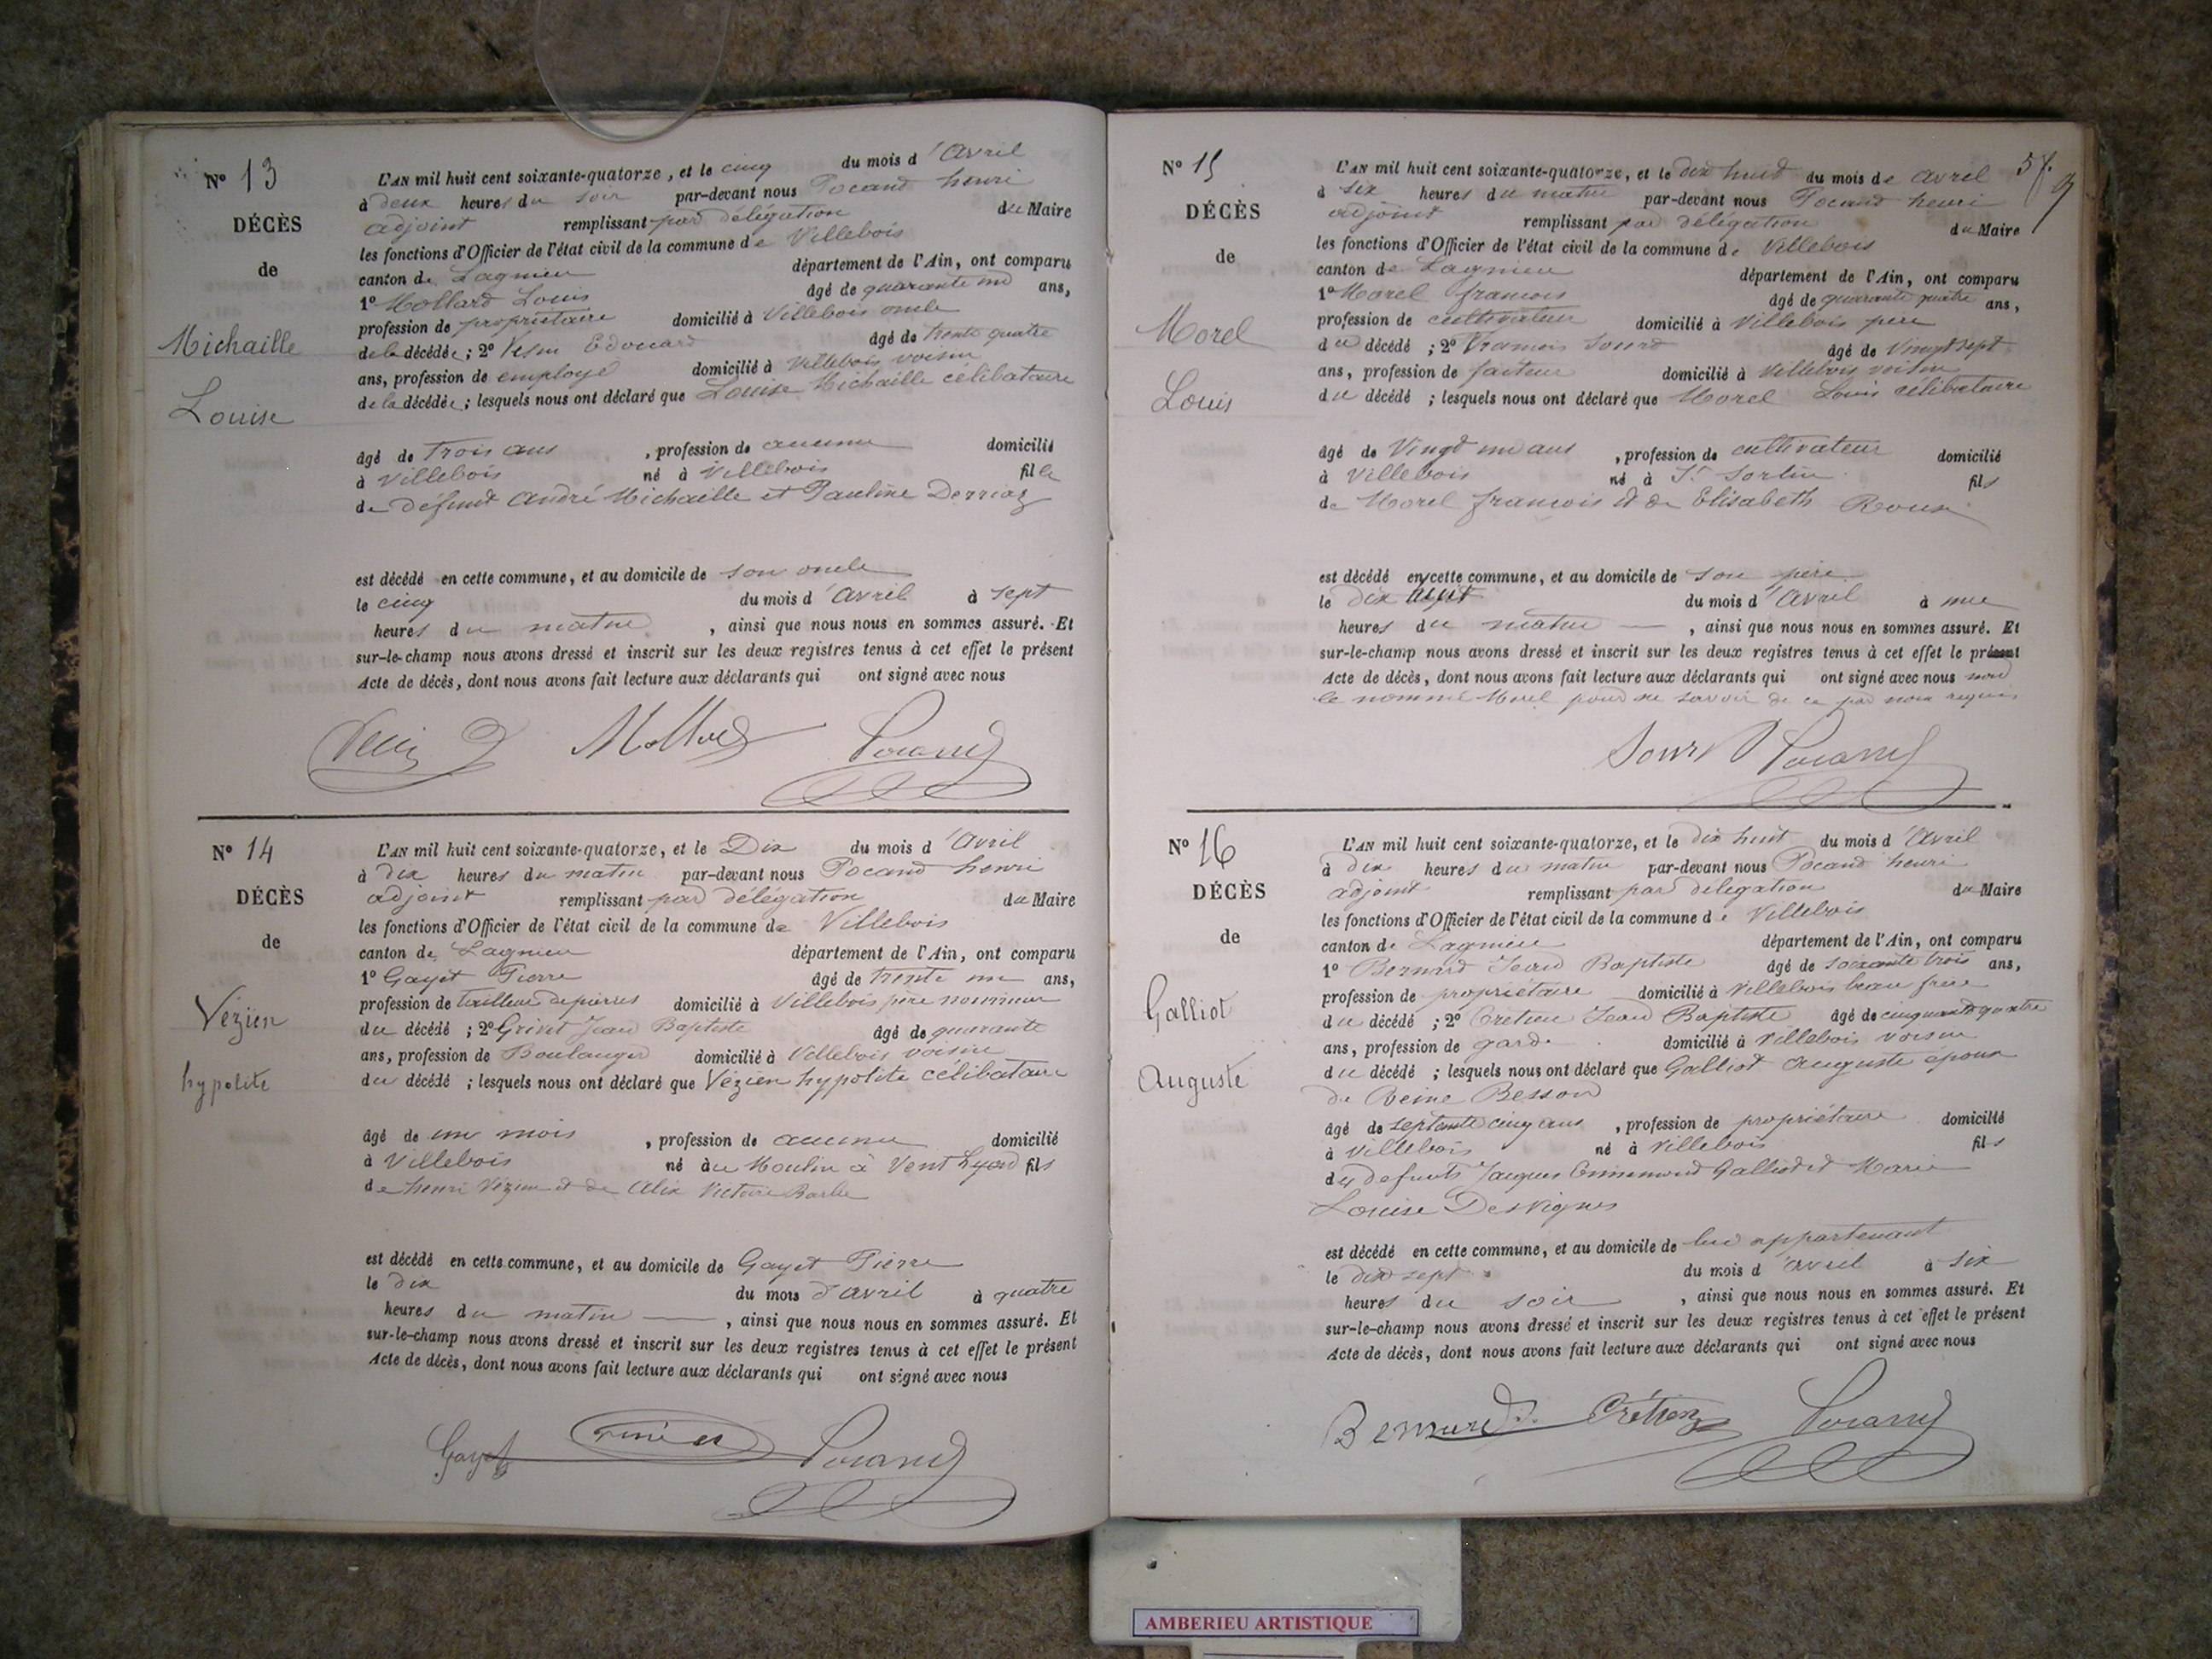 Nº 13
DÉCÈS
de
Michaille
Louise
L'AN mil huit cent soixante-quatorze, et le cinq du mois d'Avril
à deux heures du soir par-devant nous Pocand henri
adjoint remplissant par délégation du Maire
les fonctions d'Officier de l'état civil de la commune de Villebois
canton de Lagnieu département de l'Ain, ont comparu
1º Mollard Louis âgé de quarante un ans,
profession de propriétaire domicilié à Villebois oncle
de la décédée; 2º Vesin Edouard âgé de trente quatre
ans, profession de employé domicilié à Villebois voisin
de la décédée; lesquels nous ont déclaré que Louise Michaille célibataire
âgé de trois ans, profession de aucune domicilié
à Villebois né à Villebois fille
de défunt André Michaille et Pauline Derriaz
est décédé en cette commune, et au domicile de son oncle
le cinq du mois d'Avril à sept
heures du matin, ainsi que nous nous en sommes assuré. Et
sur-le-champ nous avons dressé et inscrit sur les deux registres tenus à cet effet le présent
Acte de décès, dont nous avons fait lecture aux déclarants qui ont signé avec nous
Mollard Pocand
Nº 14
DÉCÈS
de
Vézien
hypolite
L'AN mil huit cent soixante-quatorze, et le Dix du mois d'Avril
à dix heures du matin par-devant nous Pocand henri
adjoint remplissant par délégation du Maire
les fonctions d'Officier de l'état civil de la commune de Villebois
canton de Lagnieu département de l'Ain, ont comparu
1º Gayet Pierre âgé de trente un ans,
profession de tailleur de pierres domicilié à Villebois père nourricier
du décédé; 2º Grivet Jean Baptiste âgé de quarante
ans, profession de Boulanger domicilié à Villebois voisin
du décédé; lesquels nous ont déclaré que Vézien hypolite célibataire
âgé de un mois, profession de aucune domicilié
à Villebois né au Moulin à Vent Lyon fils
de henri Vézien et de Alix Victoire Barbe
est décédé en cette commune, et au domicile de Gayet Pierre
le dix du mois d'avril à quatre
heures du matin, ainsi que nous nous en sommes assuré. Et
sur-le-champ nous avons dressé et inscrit sur les deux registres tenus à cet effet le présent
Acte de décès, dont nous avons fait lecture aux déclarants qui ont signé avec nous
Gayet Pocand
57.
Nº 15
DÉCÈS
de
Morel
Louis
L'AN mil huit cent soixante-quatorze, et le dix huit du mois de avril
à six heures du matin par-devant nous Pocand henri
adjoint remplissant par délégation du Maire
les fonctions d'Officier de l'état civil de la commune de Villebois
canton de Lagnieu département de l'Ain, ont comparu
1º Morel francois âgé de quarante quatre ans,
profession de cultivateur domicilié à Villebois père
du décédé; 2º francois Sourd âgé de Vingt sept
ans, profession de facteur domicilié à Villebois voisin
du décédé; lesquels nous ont déclaré que Morel Louis célibataire
âgé de Vingt un ans, profession de cultivateur domicilié
à Villebois né à St Sorlin fils
de Morel francois et de Elisabeth Roux
est décédé en cette commune, et au domicile de son père
le dix huit du mois d'Avril à une
heures du matin, ainsi que nous nous en sommes assuré. Et
sur-le-champ nous avons dressé et inscrit sur les deux registres tenus à cet effet le présent
Acte de décès, dont nous avons fait lecture aux déclarants qui ont signé avec nous non
le nommé Morel pour ne savoir de ce par nous requis
Sourd Pocand
Nº 16
DÉCÈS
de
Galliot
Auguste
L'AN mil huit cent soixante-quatorze, et le dix huit du mois d'Avril
à dix heures du matin par-devant nous Pocand henri
adjoint remplissant par délégation du Maire
les fonctions d'Officier de l'état civil de la commune de Villebois
canton de Lagnieu département de l'Ain, ont comparu
1º Bernard Jean Baptiste âgé de soixante trois ans,
profession de propriétaire domicilié à Villebois beau frère
du décédé; 2º Cretien Jean Baptiste âgé de cinquante quatre
ans, profession de garde domicilié à Villebois voisin
du décédé; lesquels nous ont déclaré que Galliot Auguste époux
de Reine Besson
âgé de septente cinq ans, profession de propriétaire domicilié
à Villebois né à Villebois fils
des defunts Jacques Ennemond Galliot et Marie
Louise Desvignes
est décédé en cette commune, et au domicile de lui appartenant
le dix sept du mois d'avril à six
heures du soir, ainsi que nous nous en sommes assuré. Et
sur-le-champ nous avons dressé et inscrit sur les deux registres tenus à cet effet le présent
Acte de décès, dont nous avons fait lecture aux déclarants qui ont signé avec nous
Bernard Crétien Pocand
AMBERIEU ARTISTIQUE